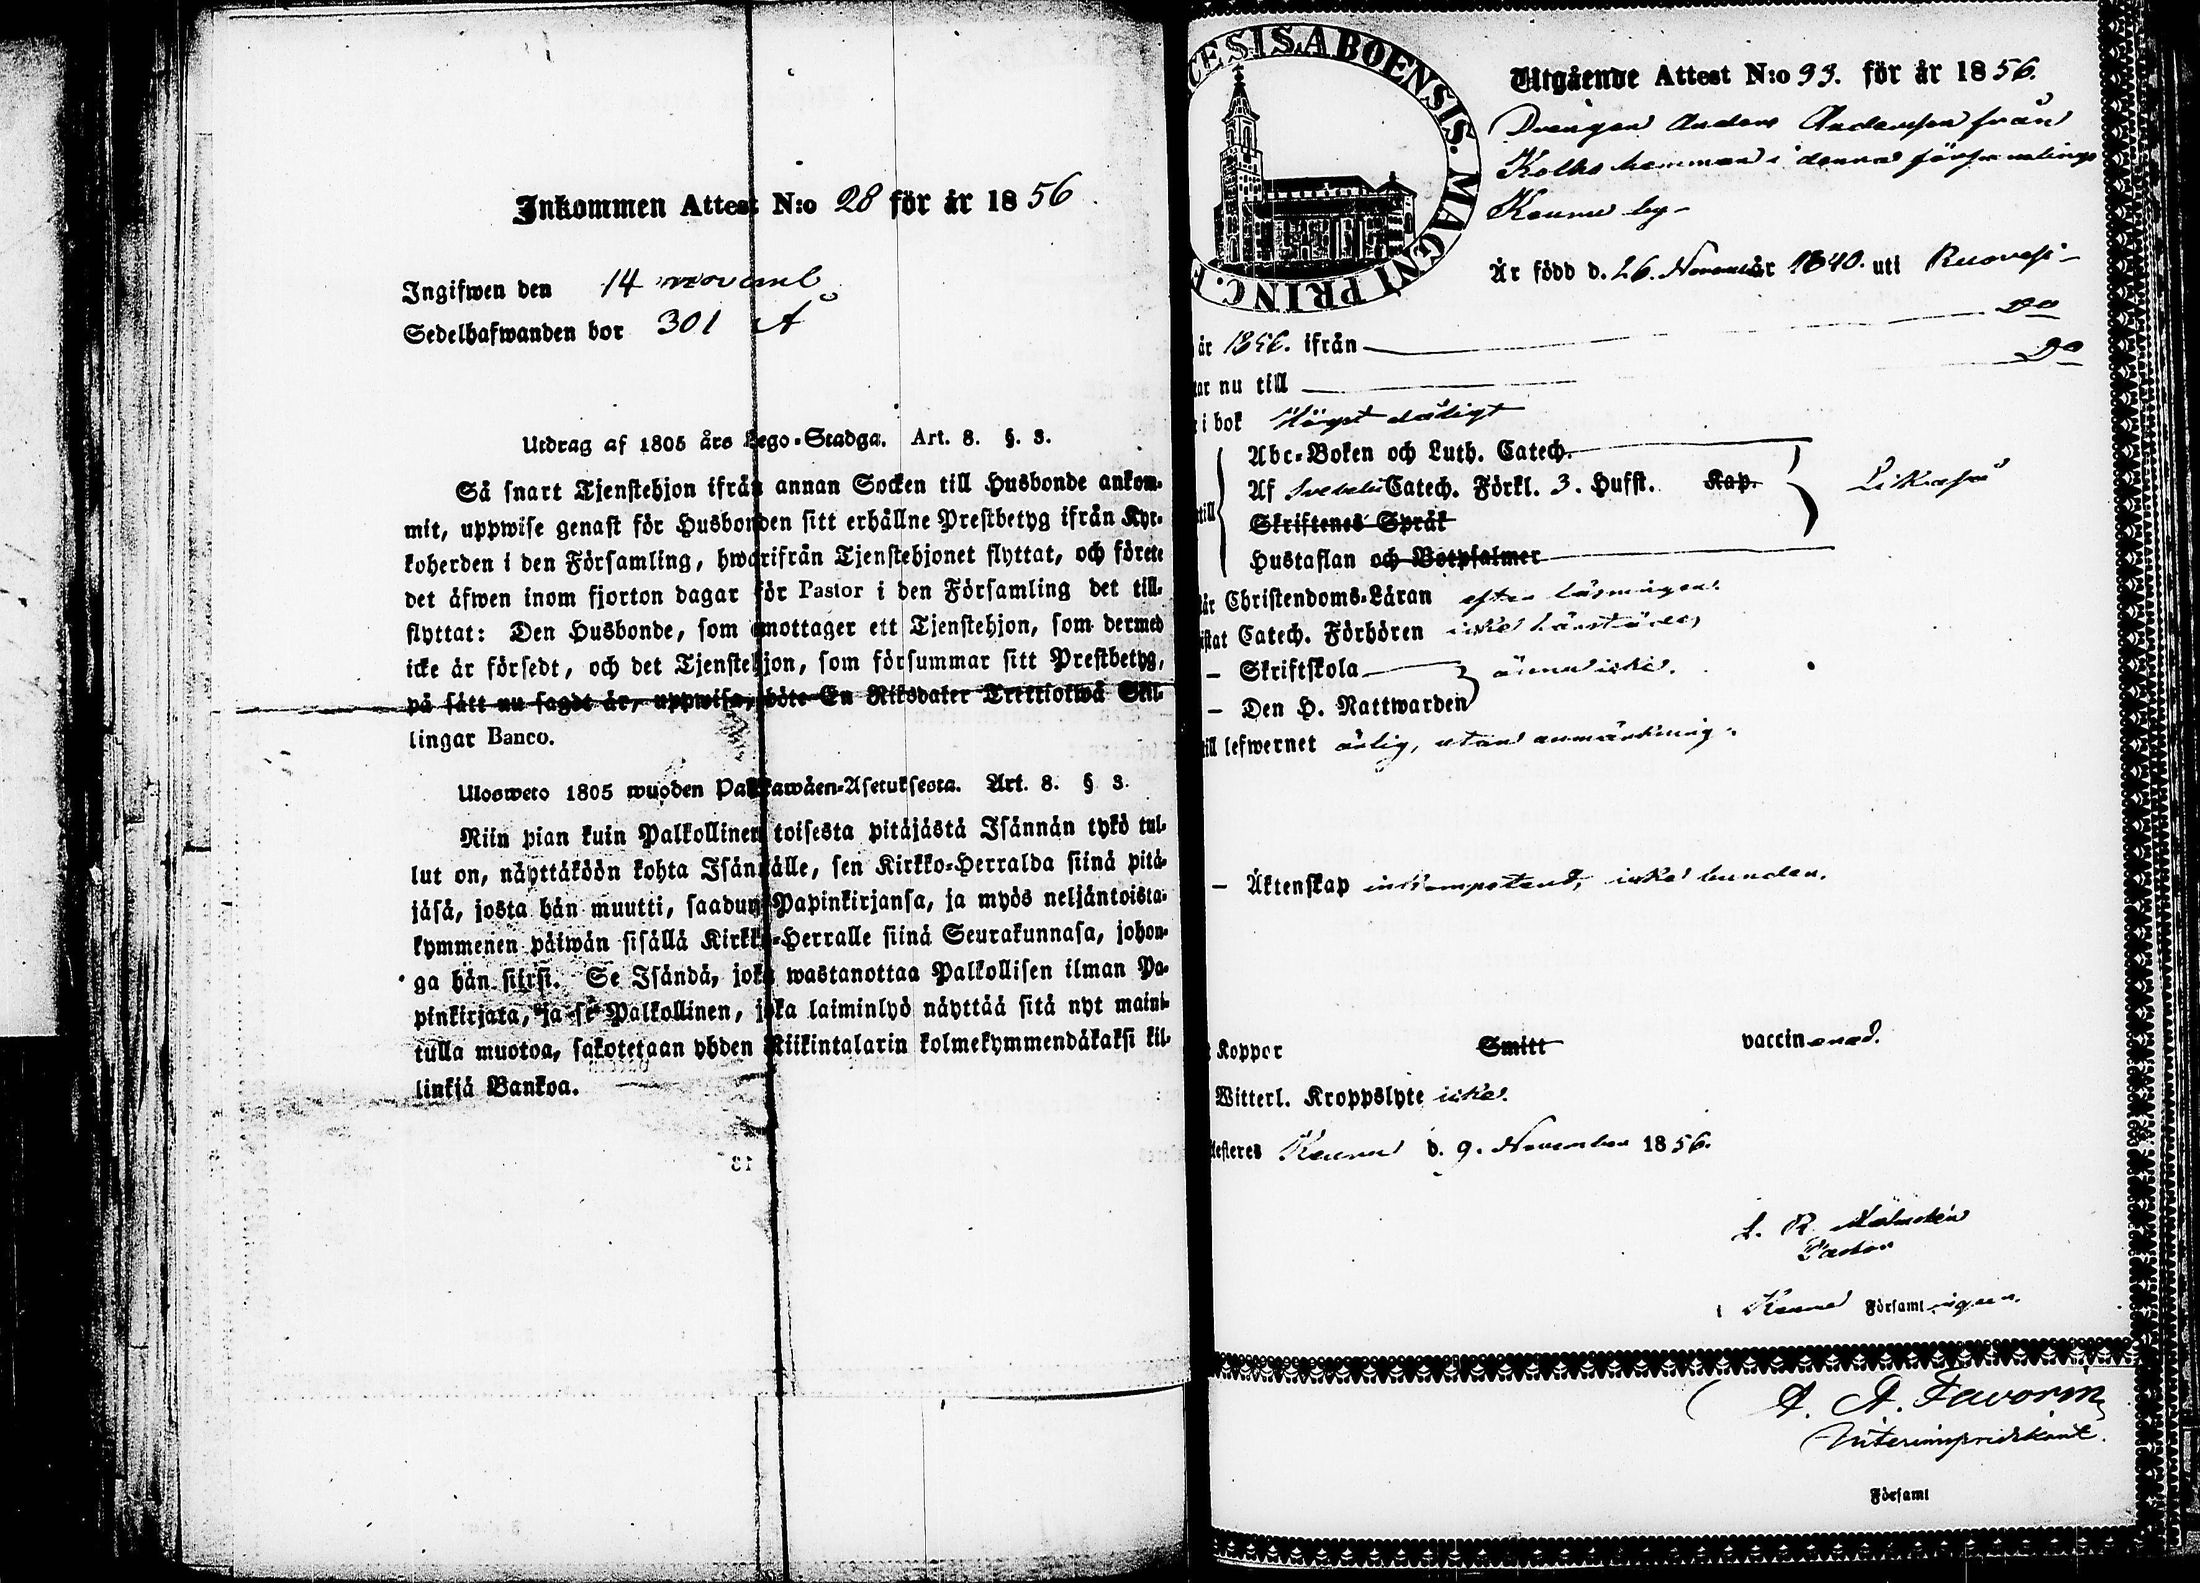 Inkommen Attest N:o 28 för år 1856
Ingifwen den 14 novemb
Sedelhafwanden bor 301 Å
Utdrag af 1805 års Lego-Stadga. Art. 8. §. 3.
Så snart Tjenstehjon ifrån annan Socken till Husbonde ankom-
mit, uppwise genast för Husbonden sitt erhållne Prestbetyg ifrån Kyr-
koherden i den Församling, hwarifrån Tjenstehjonet flyttat, och förete
det äfwen inom fjorton dagar för Pastor i den Församling det till-
flyttat: Den Husbonde, som emottager ett Tjenstehjon, som dermed
icke är försedt, och det Tjenstehjon, som försummar sitt Prestbetyg,
på sätt nu sagdt är, uppwisa, böte En Riksdaler Trettiotwå Skil-
lingar Banco.
Ulosweto 1805 wuoden Palkkawäen-Asetuksesta. Art. 8. § 3.
Niin pian kuin Palkollinen toisesta pitäjästä Isännän tykö tul-
lut on, näyttäköön kohta Isännälle, sen Kirkko-Herralda siinä pitä-
jäsä, josta hän muutti, saadun Papinkirjansa, ja myös neljäntoista-
kymmenen päiwän sisällä Kirkko-Herralle siinä Seurakunnasa, johon-
ga hän siirsi. Se Isändä, joka wastanottaa Palkollisen ilman Pa-
pinkirjata, ja se Palkollinen, joka laiminlyö näyttää sitä nyt maini-
tulla muotoa, sakotetaan yhden Riikintalarin kolmekymmendäkaksi kil-
linkiä Bankoa.
CESIS ABOENSIS. MAGNI PRINC. F
Utgående Attest N:o 93. för år 1856.
Drengen Anders Andersson från
Kolho hemman i denna församlings
Keuru by
Är född d. 26. November 1840. uti Ruovesi
Do
år 1856. ifrån
Do
tar nu till
i bok Högst dåligt
Abc-Boken och Luth. Catech.
Af Svebelii Catech. Förkl. 3. Hufst. Kap. Likaså
till
Skriftenes Språk
Hustaflan och Botpsalmer
är Christendoms-Läran efter läsningen.
istat Catech. Förhören icke
– Skriftskola ännu icke.
– Den H. Nattwarden
till lefwernet ärlig, utan anmärkning.
– Äktenskap inkompetent, icke bunden.
Koppor Smitt vaccinerad.
Witterl. Kroppslyte icke.
testeres Keuru d. 9. November 1856.
Pastor
i Keuru Församlingen.
A. A. Favorin
Interimspredikant.
Församl